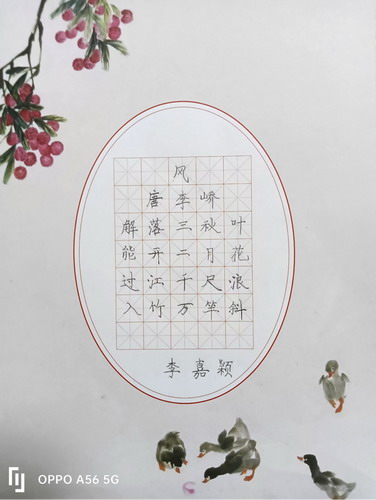 风
唐李峤
解落三秋叶
能开二月花
过江千尺浪
入竹万竿斜
李嘉颖
OPPO A56 5G